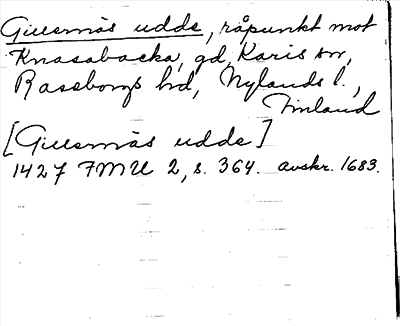 Gillesnäs udde, råpunkt mot
Knasabacka, gd, Karis sn,
Raseborgs hd, Nylands l.,
Finland
[Gillesnäs udde]
1427 FMU 2, s. 364. avskr. 1683.